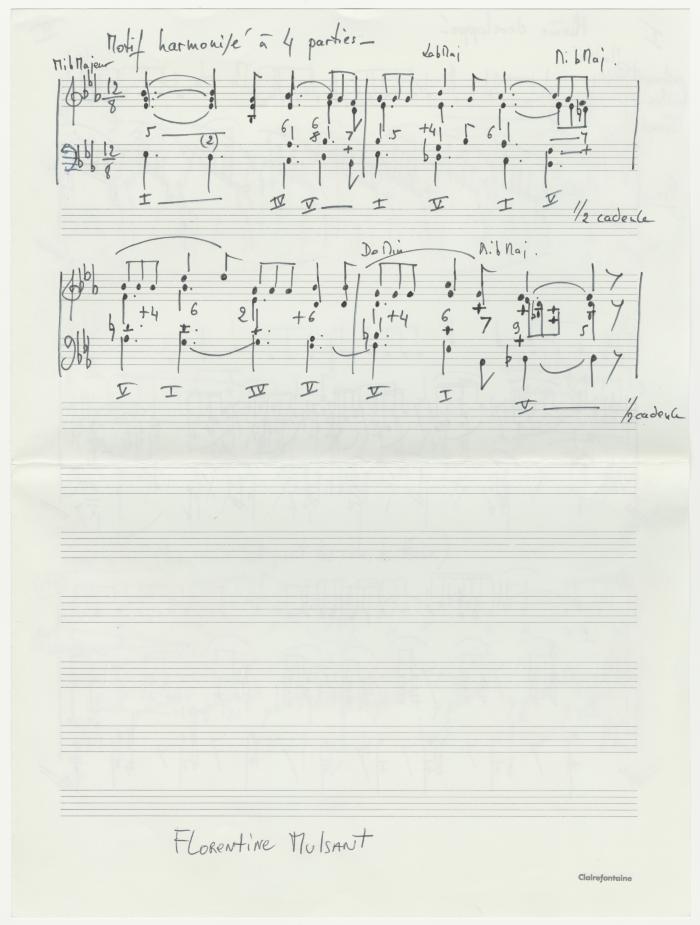 Motif harmonisé à 4 parties_
Mib Majeur
Lab Maj
Mib Maj.
12
8
5
(2)
6
6
8
7
+
5
+4
6
7
+
12
8
I
IV
V
I
V
I
V
1/2 cadence
Do Min
Mib Maj.
+4
6
2
+6
+4
6
7
9
+
5
V
I
IV
V
V
I
V
1/2 cadence
Florentine Mulsant
Clairefontaine